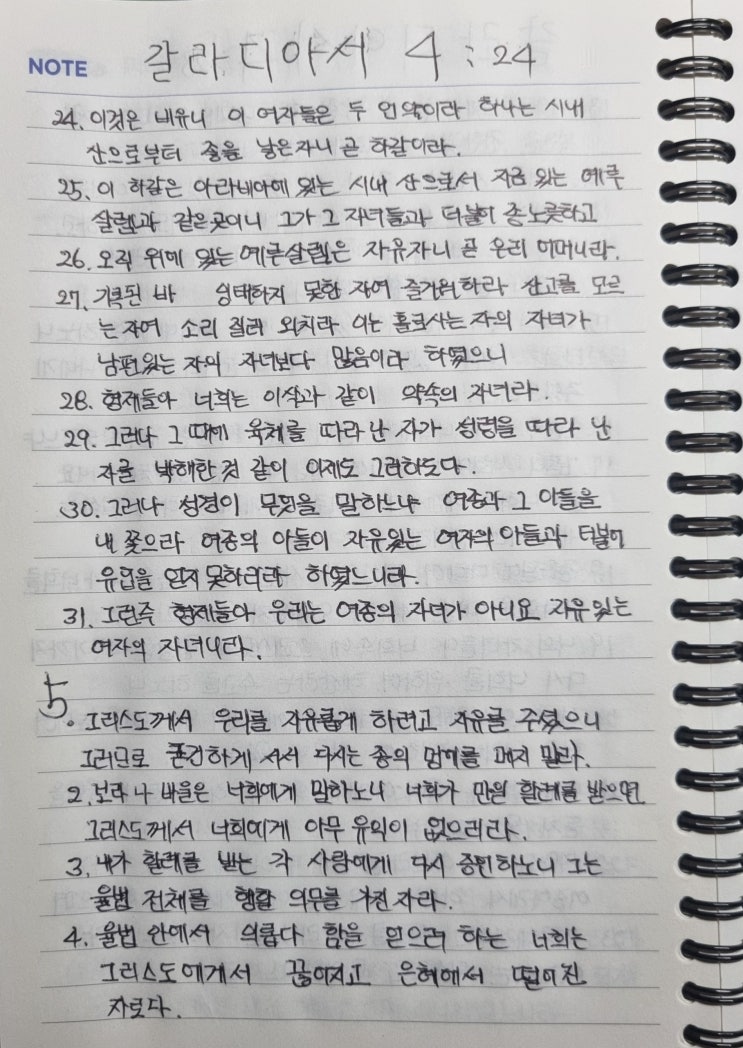 NOTE 갈라디아서 4 : 24
24. 이것은 비유니 이 여자들은 두 언약이라 하나는 시내
산으로부터 종을 낳은자니 곧 하갈이라.
25. 이 하갈은 아라비아에 있는 시내 산으로서 지금 있는 예루
살렘과 같은곳이니 그가 그 자녀들과 더불어 종노릇하고
26. 오직 위에 있는 예루살렘은 자유자니 곧 우리 어머니라.
27. 기록된 바 잉태하지 못한 자여 즐거워하라 산고를 모르
는 자여 소리 질러 외치라 이는 홀로사는 자의 자녀가
남편있는 자의 자녀보다 많음이라 하였으니
28. 형제들아 너희는 이삭과 같이 약속의 자녀라.
29. 그러나 그 때에 육체를 따라 난 자가 성령을 따라 난
자를 박해한 것 같이 이제도 그러하도다.
30. 그러나 성경이 무엇을 말하느냐 여종과 그 아들을
내 쫓으라 여종의 아들이 자유있는 여자의 아들과 더불어
유업을 얻지 못하리라 하였느니라.
31. 그런즉 형제들아 우리는 여종의 자녀가 아니요 자유 있는
여자의 자녀니라.
5
. 그리스도께서 우리를 자유롭게 하려고 자유를 주셨으니
그러므로 굳건하게 서서 다시는 종의 멍에를 메지 말라.
2. 보라 나 바울은 너희에게 말하노니 너희가 만일 할례를 받으면
그리스도께서 너희에게 아무 유익이 없으리라.
3. 내가 할례를 받는 각 사람에게 다시 증언하노니 그는
율법 전체를 행할 의무를 가진 자라.
4. 율법 안에서 의롭다 함을 얻으려 하는 너희는
그리스도에게서 끊어지고 은혜에서 떨어진
자로다.